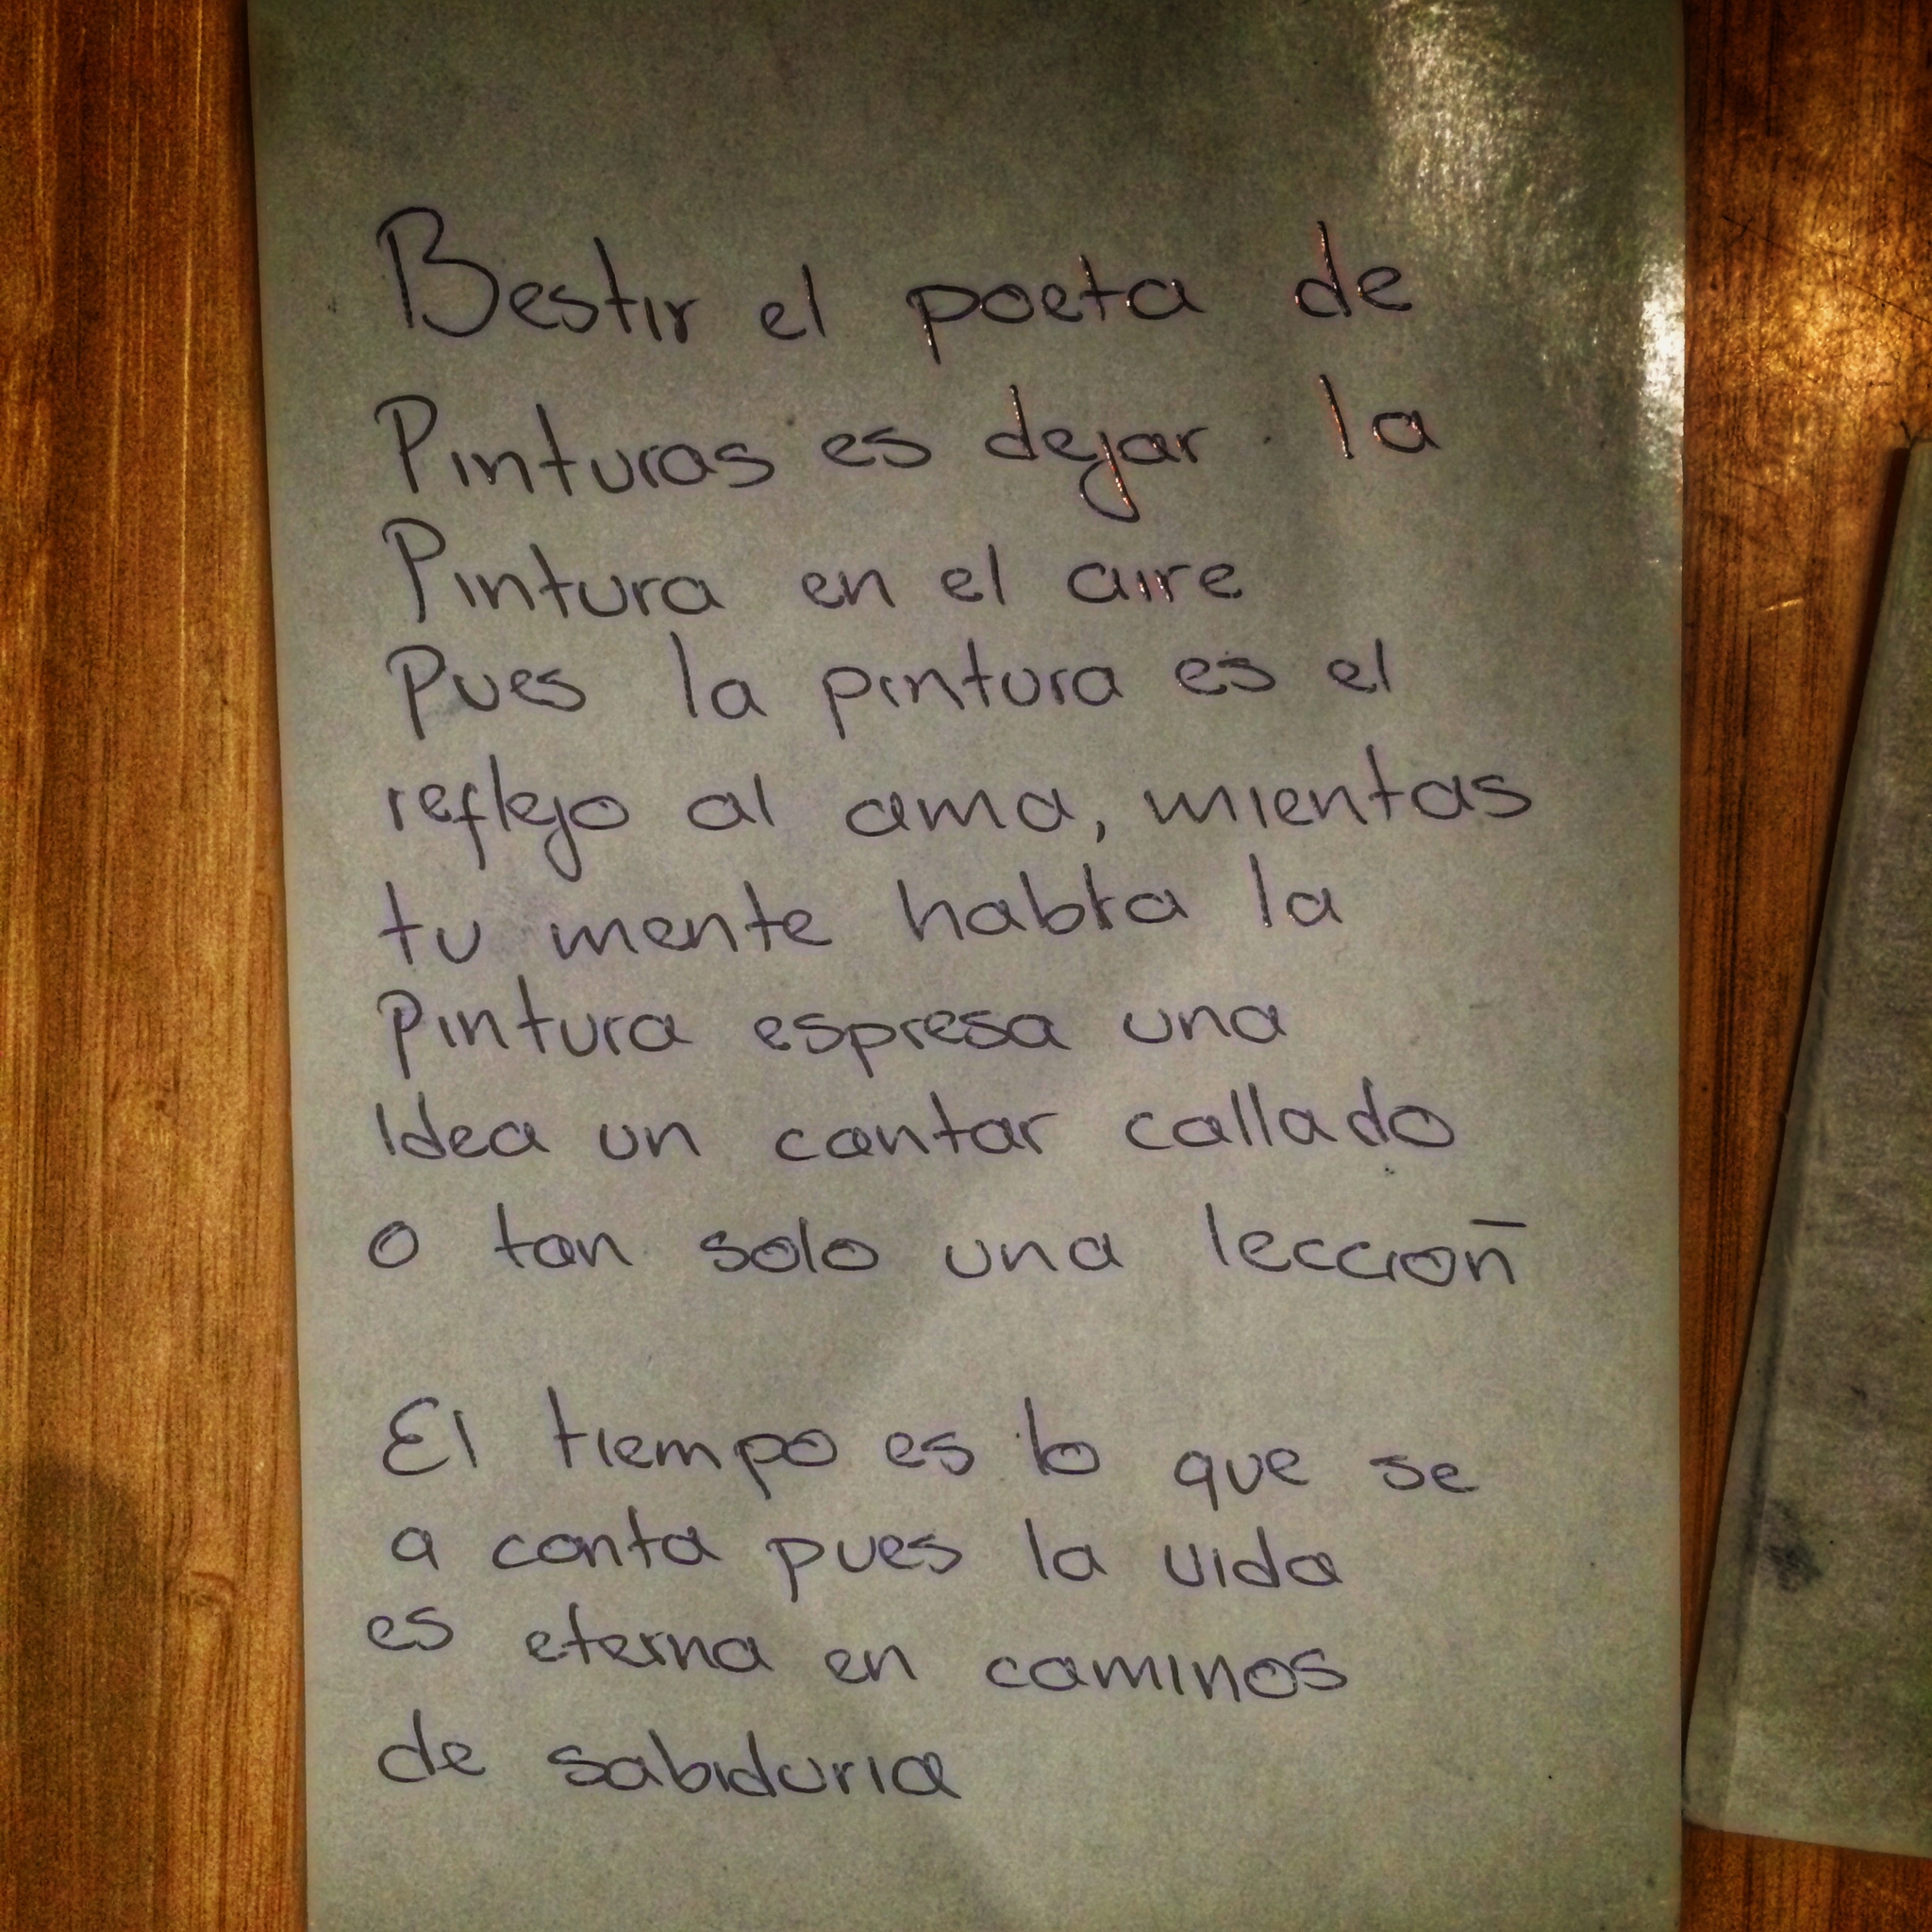 Bestir el poeta de
Pinturas es dejar la
Pintura en el aire
Pues la pintura es el
reflejo al ama, mientas
tu mente habla la
Pintura espresa una
Idea un cantar callado
o tan solo una leccion̄
El tiempo es lo que se
a canta pues la vida
es eterna en caminos
de sabiduria